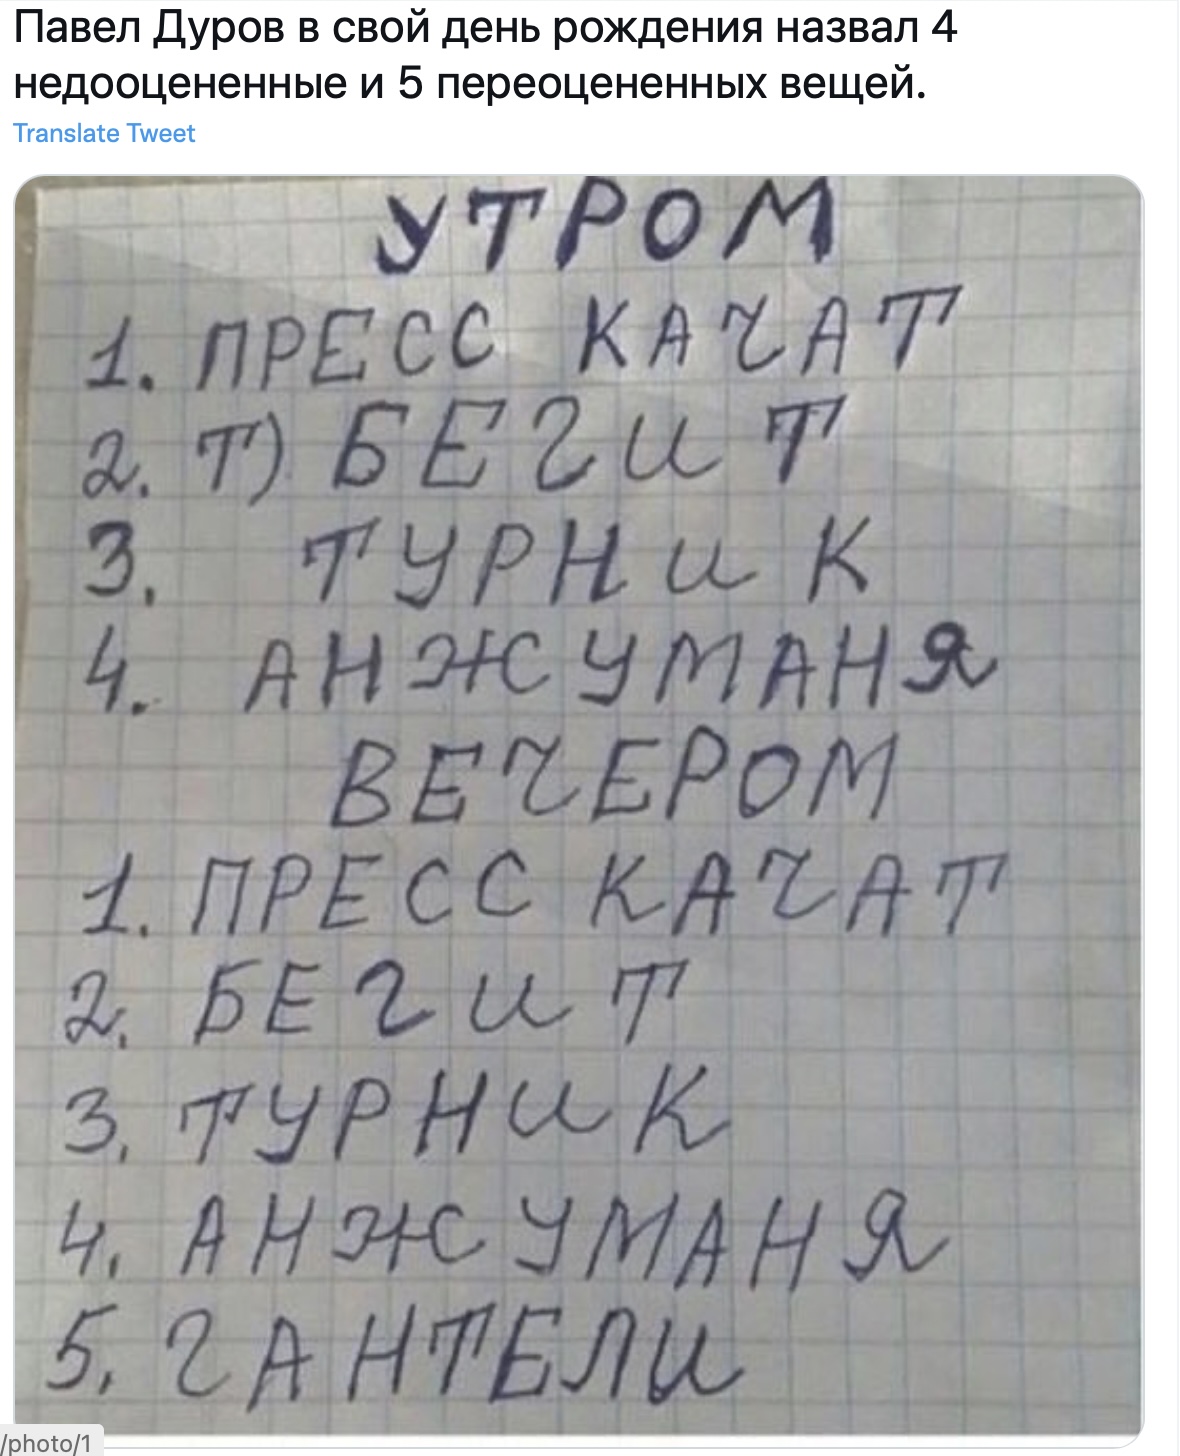 Павел Дуров в свой день рождения назвал 4
недооцененные и 5 переоцененных вещей.
Translate Tweet
УТРОМ
1. ПРЕСС КАЧАТ
2. Т) БЕГИТ
3. ТУРНИК
4. АНЖУМАНЯ
ВЕЧЕРОМ
1. ПРЕСС КАЧАТ
2. БЕГИТ
3. ТУРНИК
4. АНЖУМАНЯ
5. ГАНТЕЛИ
/photo/1